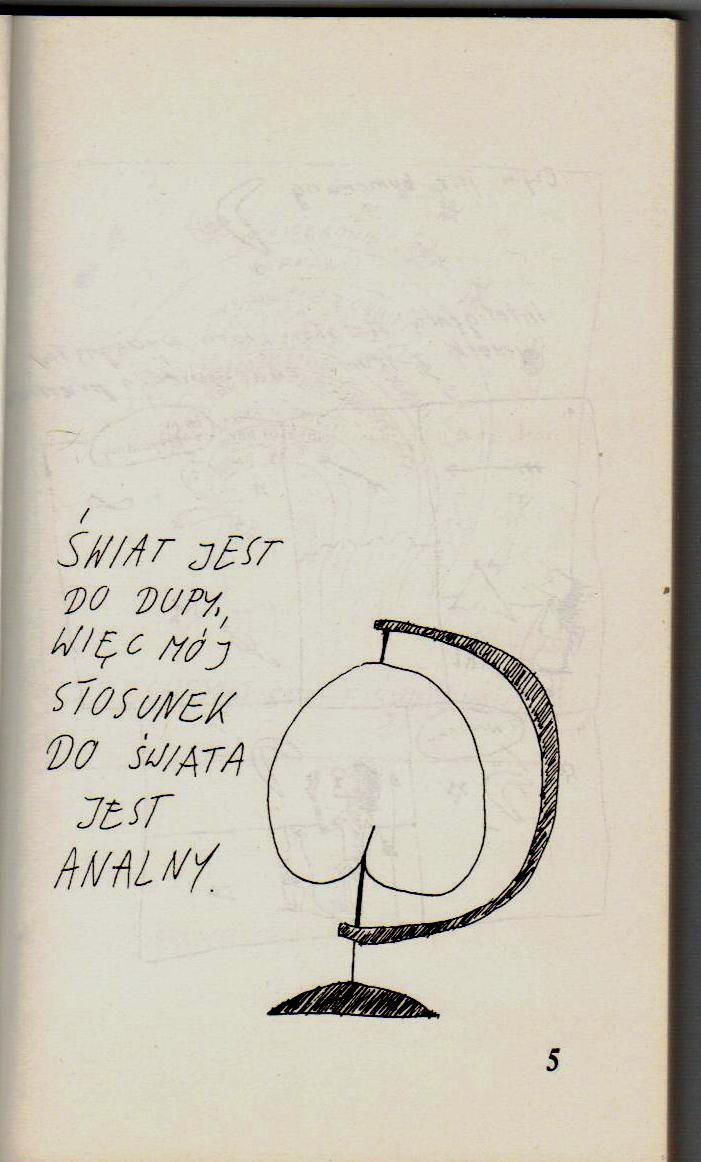 ŚWIAT JEST
DO DUPY,
WIĘC MÓJ
STOSUNEK
DO ŚWIATA
JEST
ANALNY.
5